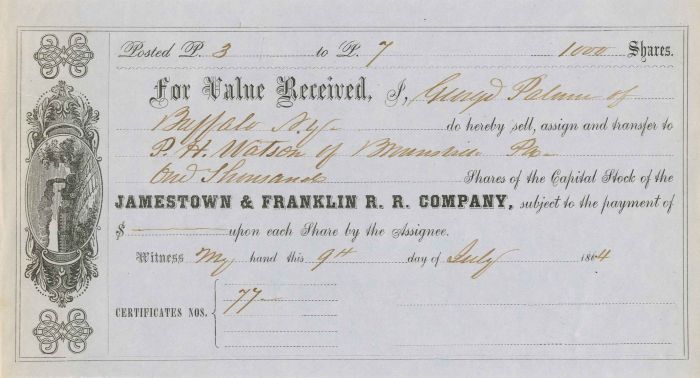 Posted P. 3 to P. 7 1000 Shares.
For Value Received, I, George Palmer of
Buffalo N.Y. do hereby sell, assign and transfer to
P. H. Watson of Pa
One Thousand Shares of the Capital Stock of the
JAMESTOWN & FRANKLIN R. R. COMPANY, subject to the payment of
$ upon each Share by the Assignee.
Witness My hand this 9th day of July 1864
CERTIFICATES NOS. 77